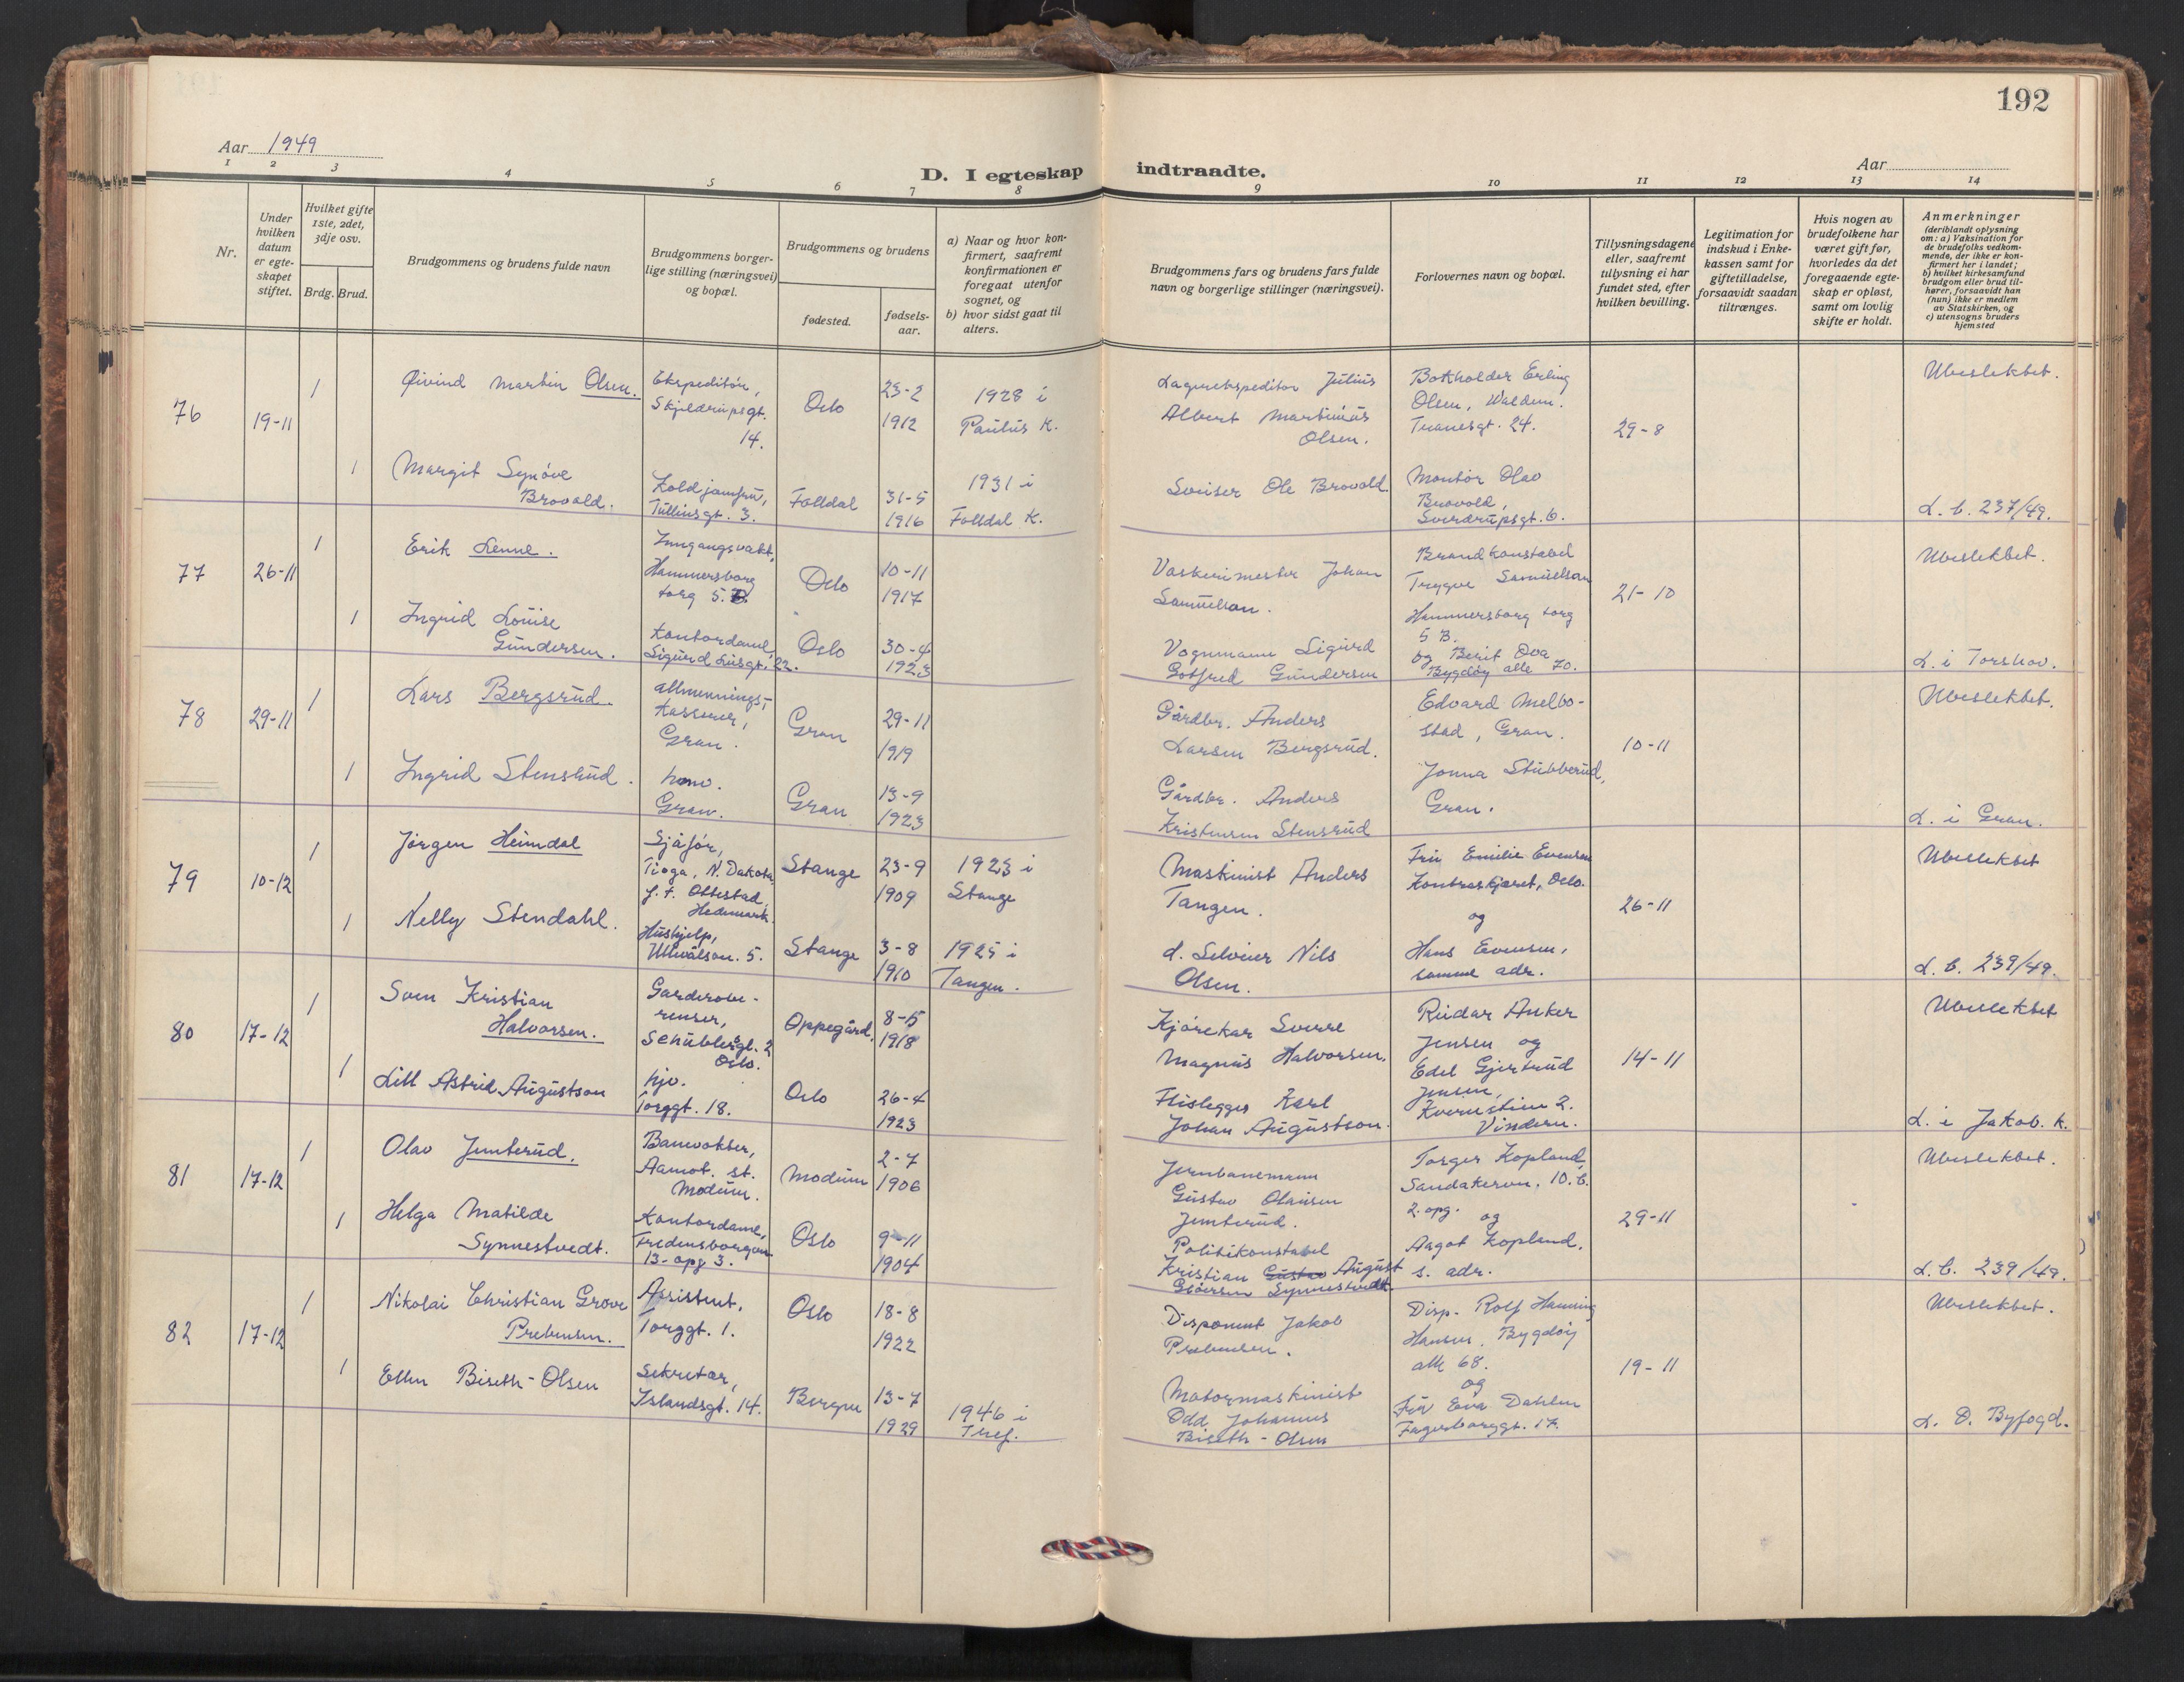 192
Aar 1949
D. I egteskap indtraadte.
Aar
1 2 3 4 5 6 7 8 9 10 11 12 13 14
Nr.
Under hvilken datum er egteskapet stiftet.
Hvilket gifte 1ste, 2det, 3dje osv.
Brdg. Brud.
Brudgommens og brudens fulde navn
Brudgommens borgerlige stilling (næringsvei) og bopæl.
Brudgommens og brudens
fødested.
fødselsaar.
a) Naar og hvor konfirmert, saafremt konfirmationen er foregaat utenfor sognet, og
b) hvor sidst gaat til alters.
Brudgommens fars og brudens fars fulde navn og borgerlige stillinger (næringsvei).
Forlovernes navn og bopæl.
Tillysningsdagene eller, saafremt tillysning ei har fundet sted, efter hvilken bevilling.
Legitimation for indskud i Enkekassen samt for giftetilladelse, forsaavidt saadan tiltrænges.
Hvis nogen av brudefolkene har været gift før, hvorledes da det foregaaende egteskap er opløst, samt om lovlig skifte er holdt.
Anmerkninger (deriblandt oplysning om: a) Vaksination for de brudefolks vedkommende, der ikke er konfirmert her i landet; b) hvilket kirkesamfund brudgom eller brud tilhører, forsaavidt han (hun) ikke er medlem av Statskirken, og c) utensogns bruders hjemsted
76
19-11
1
Øivind Martin Olsen.
Ekspeditør,
Skjeldrupsgt.
14.
Oslo
23-2
1912
1928 i
Paulus K.
Lagerekspeditør Julius
Albert Martinius
Olsen.
Bokholder Erling
Olsen, Waldem.
Tranesgt. 24.
29-8
Ubeslektet.
1
Margit Synöve
Brovold.
Koldjomfru,
Tullinsgt. 3.
Folldal
31-5
1916
1931 i
Folldal K.
Sveiser Ole Brovold.
Montör Olav
Brovold,
Sverdrupsgt. 6.
L. b. 237/49.
77
26-11
1
Erik Lenne.
Inngangsvakt,
Hammersborg
torg 5.B.
Oslo
10-11
1917
Vaskerimester Johan
Samuelson.
Brandkonstabel
Trygve Samuelson
Hammersborg torg
5 B.
21-10
Ubeslektet.
1
Ingrid Louise
Gundersen.
Kontordame,
Sigurd Lusgt. 22.
Oslo
30-4
1923
Vognmann Sigurd
Gotfred Gundersen
og Berit Dva
Bygdöy alle 70.
L. i Torshov.
78
29-11
1
Lars Bergsrud.
allmennings-
kasserer,
Gran.
Gran
29-11
1919
Gårdbr. Anders
Larsen Bergsrud.
Edvard Melbo-
stad, Gran.
10-11
Ubeslektet.
1
Ingrid Stensrud.
hjmv.
Gran.
Gran
13-9
1923
Gårdbr. Anders
Kristensen Stensrud
Jonna Stubberud,
Gran.
L. i Gran.
79
10-12
1
Jörgen Heimdal
Sjåför,
Tioga, N. Dakota,
f. t. Ottestad,
Hedemark.
Stange
23-9
1909
1923 i
Stange
Maskinist Anders
Tangen.
Fru Emilie Evensen
Kontraskjæret, Oslo.
og
26-11
Ubeslektet
1
Nelly Stendahl.
Hushjelp,
Ullevålsvn. 5.
Stange
3-8
1910
1925 i
Tangen.
d. Selveier Nils
Olsen.
Hans Evensen,
samme adr.
L. b. 239/49.
80
17-12
1
Sven Kristian
Halvorsen.
Garderobe-
renser,
Schüblersgt. 2
Oslo.
Oppegård.
8-5
1918
Kjörekar Sverre
Magnus Halvorsen.
Reidar Anker
Jensen og
Edel Gjertrud
Jensen,
Kvernstien 2.
Vindern.
14-11
Ubeslektet
1
Lill Astrid Augustson
hjv.
Torggt. 18.
Oslo
26-4
1923
Flislegger Karl
Johan Augustson.
L. i Jakob. K.
81
17-12
1
Olav Jenterud.
Banevokter,
Aamot. st.
Modum.
Modum
2-7
1906
Jernbanemann
Gustav Olausen
Jenterud.
Torger Kopland,
Sandakervn. 10.b.
2. opg. og
Aagot Kopland,
s. adr.
29-11
Ubeslektet.
1
Helga Matilde
Synnestvedt.
Kontordame,
Fredensborgvn.
13- opg 3.
Oslo
9-11
1904
Politikonstabel
Kristian Gustav August
Siversen Synnestvedt
L. b. 239/49.
82
17-12
1
Nikolai Christian Grove
Prebensen.
Assistent,
Torggt. 1.
Oslo
18-8
1922
Disponent Jakob
Prebensen.
Disp. Rolf Henning
Hansen, Bygdöy
alle 68.
og
19-11
Ubeslektet.
1
Ellen Biseth-Olsen
Sekretær,
Islandsgt. 14.
Bergen
13-7
1929
1946 i
Tref.
Motormaskinist
Odd Johannes
Biseth-Olsen
Fru Eva Dahlen
Fagerborggt. 17.
L. O. Byfogd.